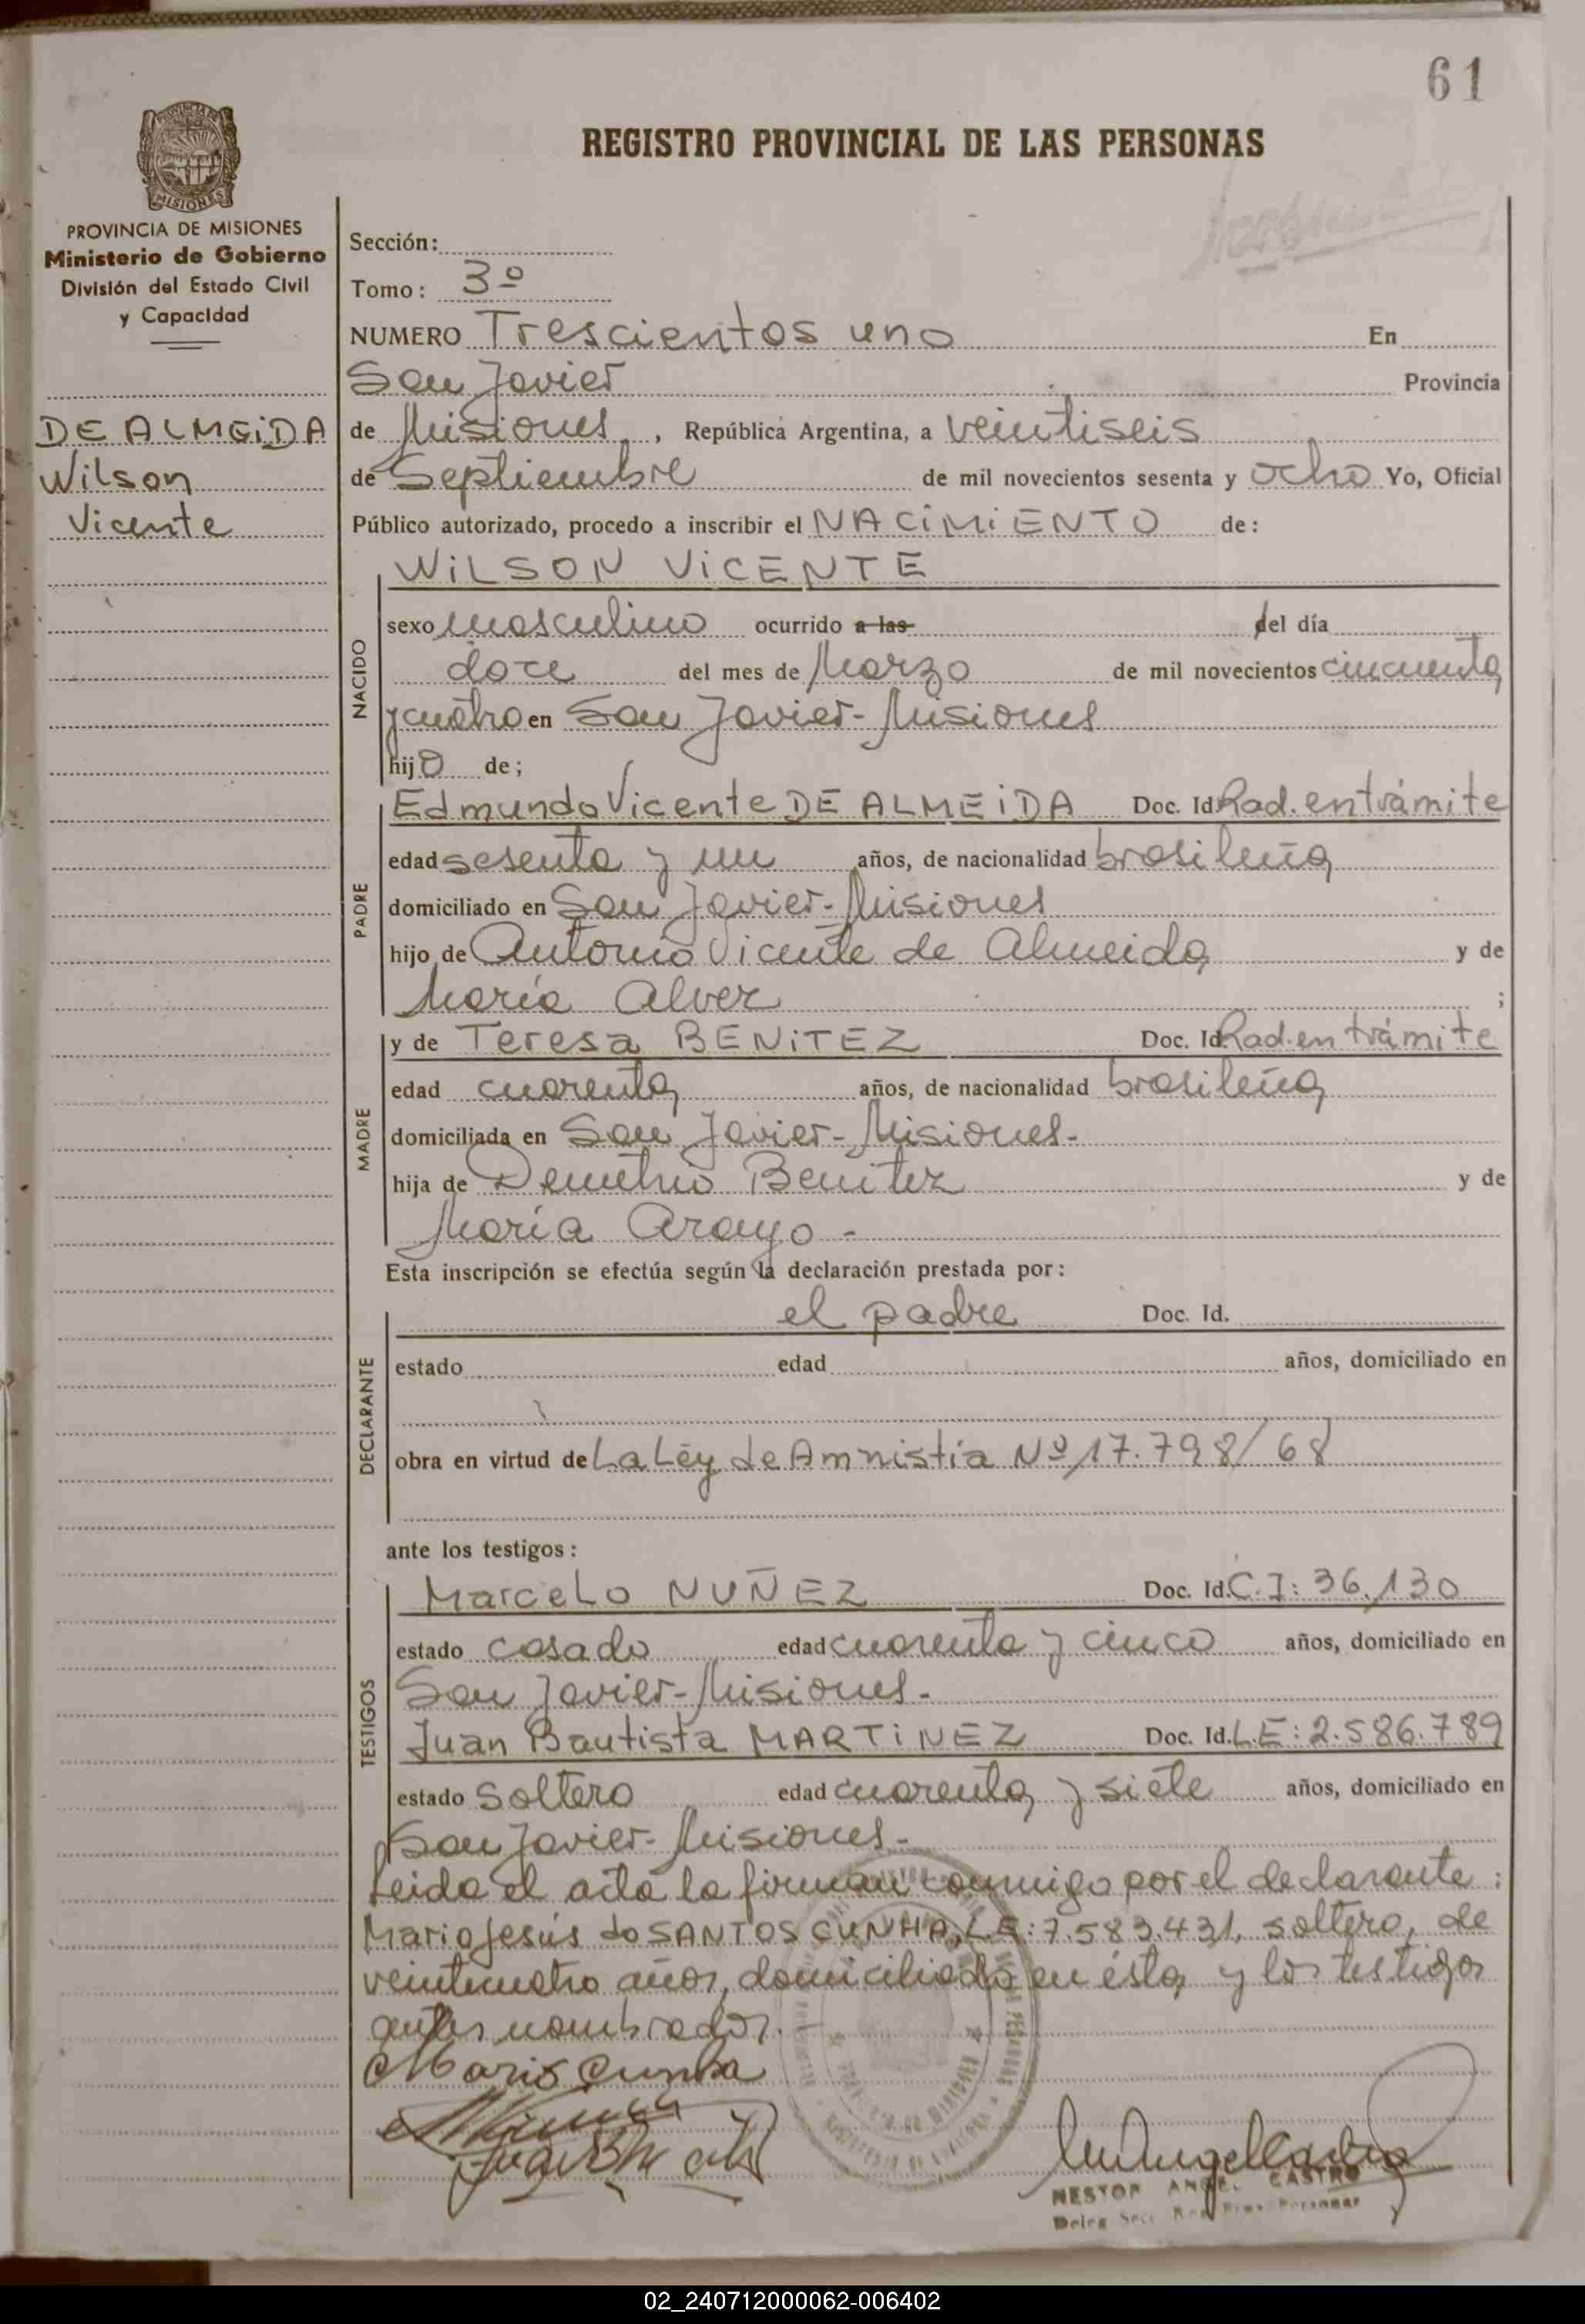 61
REGISTRO PROVINCIAL DE LAS PERSONAS
PROVINCIA DE MISIONES
Ministerio de Gobierno
División del Estado Civil
y Capacidad
DE ALMEIDA
Wilson
Vicente
Sección:
Tomo: 3º
NUMERO Trescientos uno En
San Javier Provincia
de Misiones, República Argentina, a veintiseis
de Septiembre de mil novecientos sesenta y ocho Yo, Oficial
Público autorizado, procedo a inscribir el NACIMIENTO de:
NACIDO
WILSON VICENTE
sexo masculino ocurrido a las del día
doce del mes de Marzo de mil novecientos cincuenta
y cuatro en San Javier - Misiones
hijo de;
PADRE
Edmundo Vicente DE ALMEIDA Doc. Id. Rad. en trámite
edad sesenta y un años, de nacionalidad brasileña
domiciliado en San Javier - Misiones
hijo de Antonio Vicente de Almeida y de
María Alvez ;
MADRE
y de Teresa BENITEZ Doc. Id. Rad. en trámite
edad cuarenta años, de nacionalidad brasileña
domiciliada en San Javier - Misiones -
hija de Demetrio Benitez y de
María Arayo -
Esta inscripción se efectúa según la declaración prestada por:
DECLARANTE
el padre Doc. Id.
estado edad años, domiciliado en
obra en virtud de La Ley de Amnistía Nº 17.798/68
ante los testigos:
TESTIGOS
Marcelo NUÑEZ Doc. Id. C.I: 36.130
estado casado edad cuarenta y cinco años, domiciliado en
San Javier - Misiones -
Juan Bautista MARTINEZ Doc. Id. L.E: 2.586.789
estado soltero edad cuarenta y siete años, domiciliado en
San Javier - Misiones -
Leida el acta la firman conmigo por el declarante:
Mario Jesús do SANTOS CUNHA, L.E: 7.583.431, soltero, de
veinticuatro años, domiciliado en ésta y los testigos
antes nombrados.
Mario Cunha
NESTOR ANGEL CASTRO
02_240712000062-006402